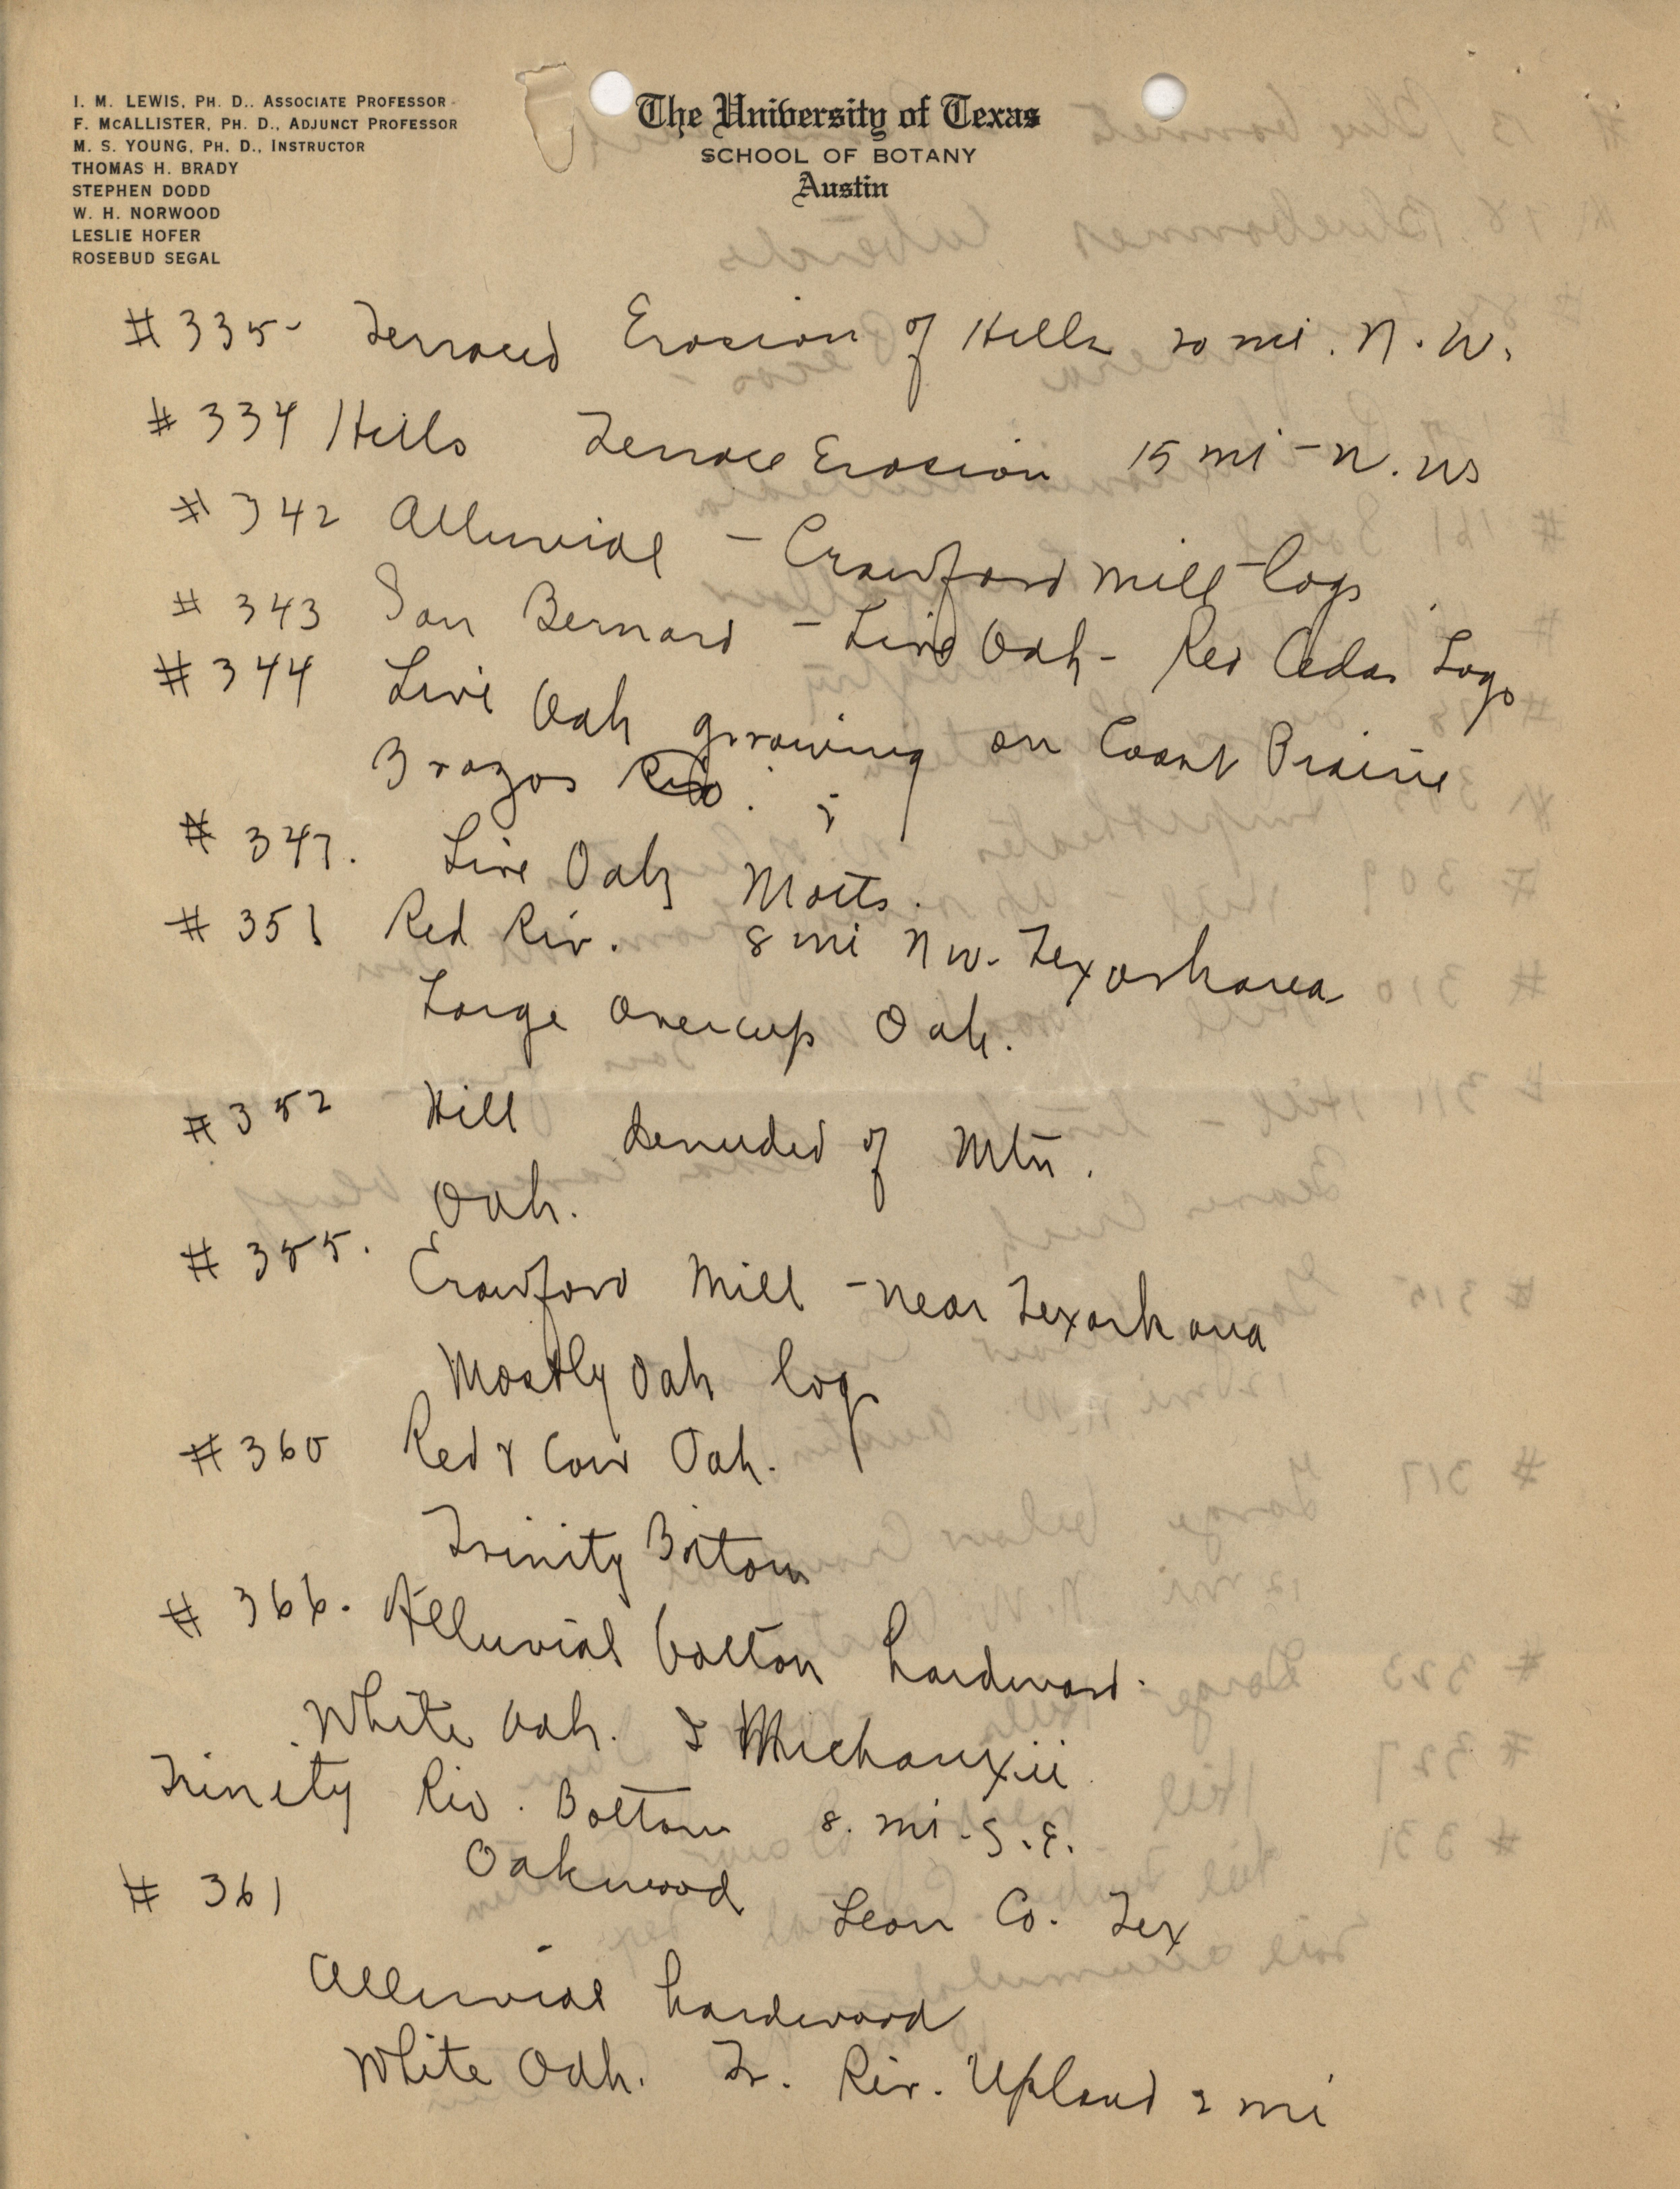 I. M. LEWIS, PH. D., ASSOCIATE PROFESSOR
F. MCALLISTER, PH. D., ADJUNCT PROFESSOR
M. S. YOUNG, PH. D., INSTRUCTOR
THOMAS H. BRADY
STEPHEN DODD
W. H. NORWOOD
LESLIE HOFER
ROSEBUD SEGAL
The University of Texas
SCHOOL OF BOTANY
Austin
# 335- Terraced Erosion of Hills 20 mi. N. W.
# 334 Hills Terrace Erosion 15 mi - N. W
# 342 Alluvial - Crawford Mill - logs
# 343 San Bernard - Live Oak - Red Cedar Logs
# 344 Live Oak growing on Coast Prairie
Brazos Riv. ;
# 347. Live Oak Motts.
# 351 Red Riv. 8 mi N W. Texarkana
Large Overcup Oak.
# 352 Hill denuded of Mtn.
Oak.
# 355. Crawford Mill - near Texarkana
Mostly Oak logs
# 360 Red & Cow Oak.
Trinity Bottom
# 366. Alluvial bottom hardwood.
White Oak. & Michauxii
Trinity Riv. Bottom 8. mi. S. E.
Oakwood Leon Co. Tex
# 361
Alluvial hardwood
White Oak. Tr. Riv. Upland 2 mi